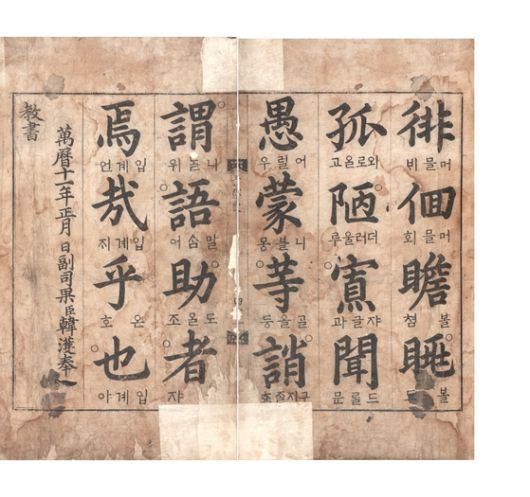 徘 머믈 비
佪 머믈 회
瞻 볼 쳠
眺 볼
孤 와로올 고
陋 더러울 루
寡 쟈글 과
聞 드를 문
愚 어릴 우
蒙 니블 몽
等 골을 등
誚 구지즐 초
謂 니를 위
語 말 어
助 도올 조
者 쟈
焉 입계 언
哉 입계 지
乎 온 호
也 입계 야
萬曆十一年正月 日副司果臣韓濩奉
教書